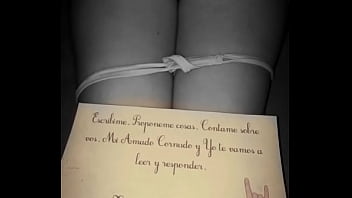 Escribime, Proponeme cosas, Contame sobre
vos, Mi Amado Cornudo y Yo te vamos a
leer y responder.